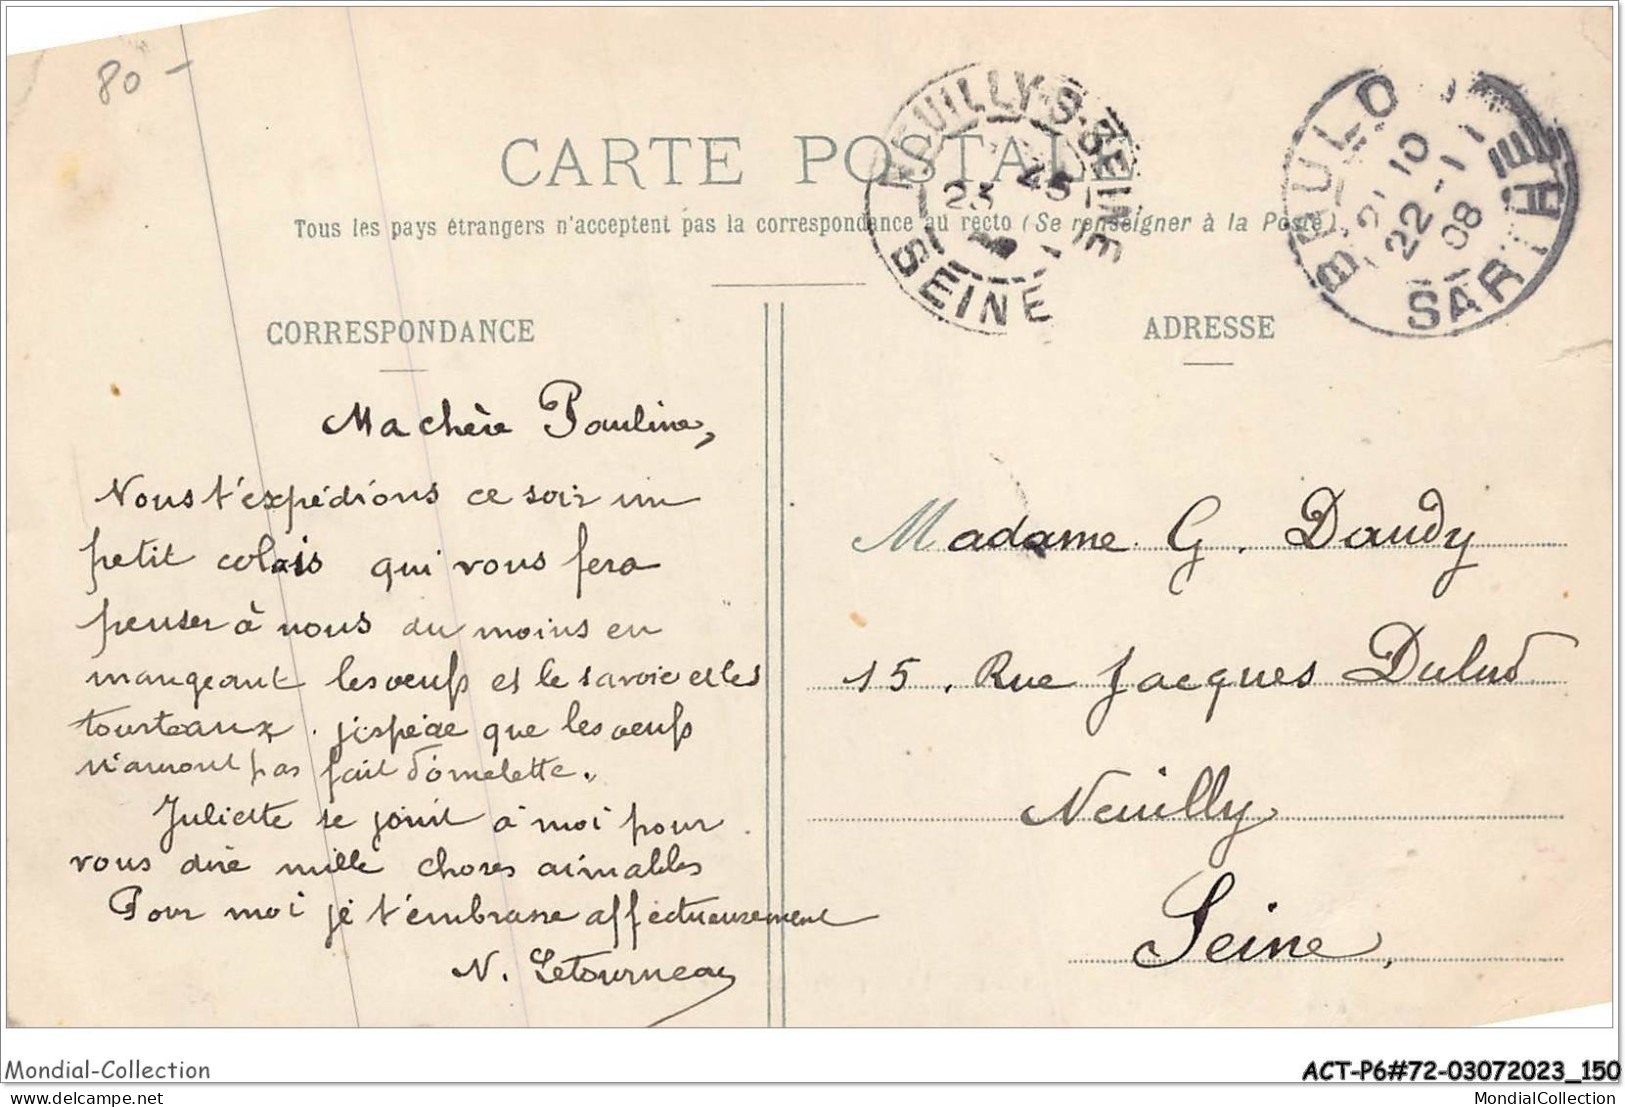 80 -
CARTE POSTALE
Tous les pays étrangers n'acceptent pas la correspondance au recto (Se renseigner à la Poste)
NEUILLY-S-SEINE
23 45
SEINE
BEULO
21 10
22-11
08
SARTHE
CORRESPONDANCE
Ma chère Pauline,
Nous t'expédions ce soir un
petit colais qui vous fera
penser à nous au moins en
mangeant les oeufs et le savoie et les
tourteaux. j'espère que les oeufs
n'auront pas fait d'omelette.
Juliette se joint à moi pour
vous dire mille choses aimables
Pour moi je t'embrasse affectueusement
N. Letourneau
ADRESSE
Madame G. Daudy
15, Rue Jacques Dulud
Neuilly
Seine,
Mondial-Collection
ACT-P6#72-03072023_150
delcampe.net
MondialCollection